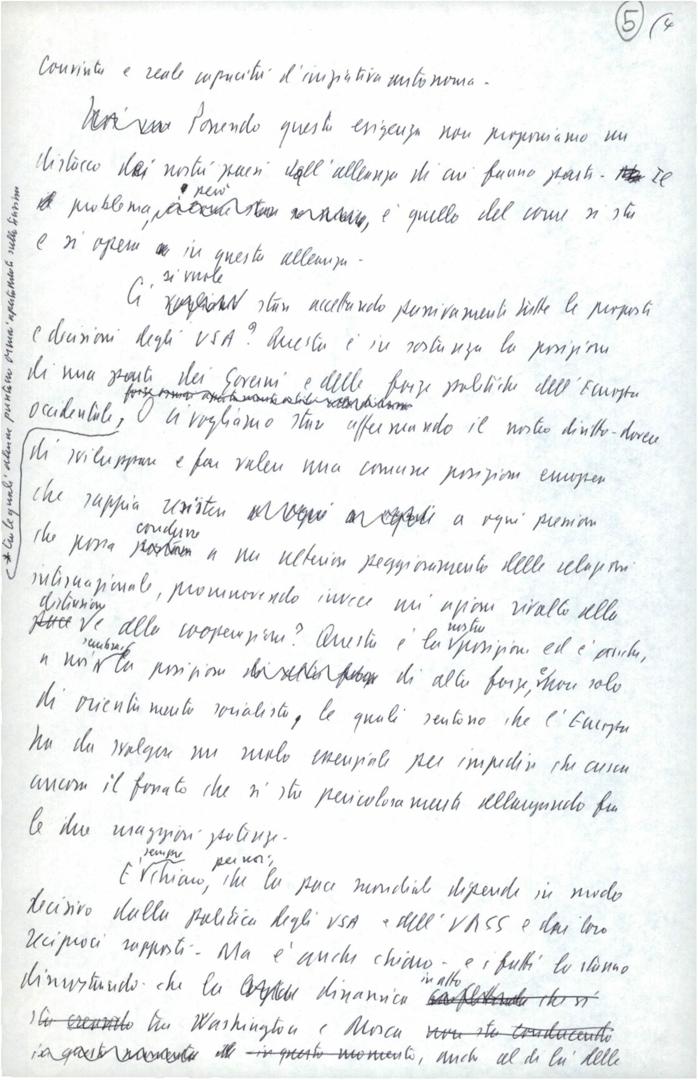 5 (4
convinta e reale capacità d'iniziativa autonoma -
Ponendo questa esigenza non proponiamo un
distacco dei nostri paesi dall'alleanza di cui fanno parte - Il
però
problema, è quello del come si sta
e si opera in questa alleanza -
si vuole
Ci stare accettando passivamente tutte le proposte
e decisioni degli USA? Questa è in sostanza la posizione
di una parte dei Governi e delle forze politiche dell'Europa
occidentale, O ci vogliamo stare affermando il nostro diritto-dovere
di sviluppare e far valere una comune posizione europea
che sappia resistere a ogni pressione
condurre
che possa a un ulteriore peggioramento delle relazioni
internazionali, promuovendo invece un'azione rivolta alla
distensione
e alla cooperazione? Questa è la posizione ed è anche,
nostra
sembra
a noi la posizione di altre forze, e non solo
di orientamento socialista, le quali sentono che l'Europa
ha da svolgere un ruolo essenziale per impedire che cresca
ancora il fossato che si sta pericolosamente allargando fra
le due maggiori potenze -
sempre per noi,
È chiaro, che la pace mondiale dipende in modo
decisivo dalla politica degli USA e dell'URSS e dai loro
reciproci rapporti - Ma è anche chiaro - e i fatti lo stanno
in atto
dimostrando - che la dinamica che si
sta creando tra Washington e Mosca non sta conducendo
in questo momento, anche al di là delle
* tra le quali alcune puntano ormai apertamente sulla